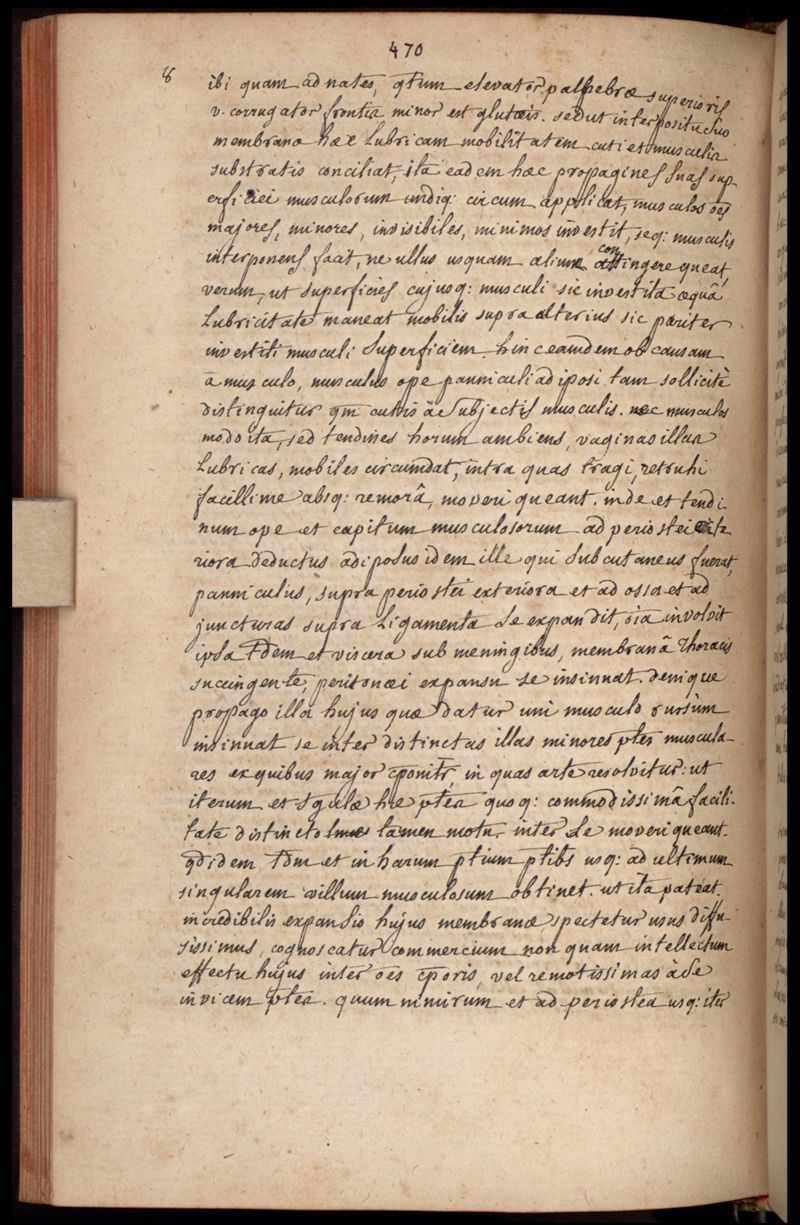 470
8 ibi quam ad nates, qtum elevator palpebræ superioris
v. corrugator frontis minor est glutæis. sed ut interpositu suo
membrana hæc lubricam mobilitatem cuti et musculis
substratis conciliat, ita eadem hæc propagines suas sup
erficiei musculorum undiq: circum applicat, musculos oēs
majores, minores, invisibiles, minimos investit, seq: musculis
interponens facit, ne ullus usquam alium contingere queat,
verum, ut superficies cujusq: musculi sic investita æquâ
lubricitate maneat mobilis supra alterius sic pariter
investiti musculi superficiem. hinc eamdem ob causam
a musculo, musculus ope panniculi adiposi tam sollicitè
distinguitur qm cutis àc subjectis musculis. nec musculos
modo ita, sed tendines horum ambiens, vaginas illua
lubricas, mobiles circumdat, intra quas trahi, retrahi
facillime absq: remorâ, moveri queant. inde et tendi
num ope et capitum musculosorum ad periostei exte
riora deductus adiposus idem ille qui subcutaneus fuerat,
panniculus, supra periostei exteriora et ad ossa et ad
juncturas supra ligamenta se expandit, oīa involvit
ipsa tdem et viscera sub meningibus, membranâ thoracis
succingente, peritonæi expansu se insinuat. denique
propago illa hujus quæ datur uni musculo rursùm
insinuat se inter distinctas illas minores ptes muscula-
res ex quibus major cponitr, in quas arte resolvitur: ut
iterum et sgulæ hæ ptes quoq: commodissimâ facili-
tate distincto tamen motu inter se moveri queant.
qd idem tdm et in harum ptium ptibs usq: ad ultimum
singularem villum musculosum obtinet. ut ita pateat
incredibilis expansio hujus membranæ spectetur usus diffu-
sissimus, cognoscatur commercium non quam intellectum
effectu hujus inter oēs cporis, vel remotissimas à se
invicem ptes. quum nimirum et ad periostea usq: iter